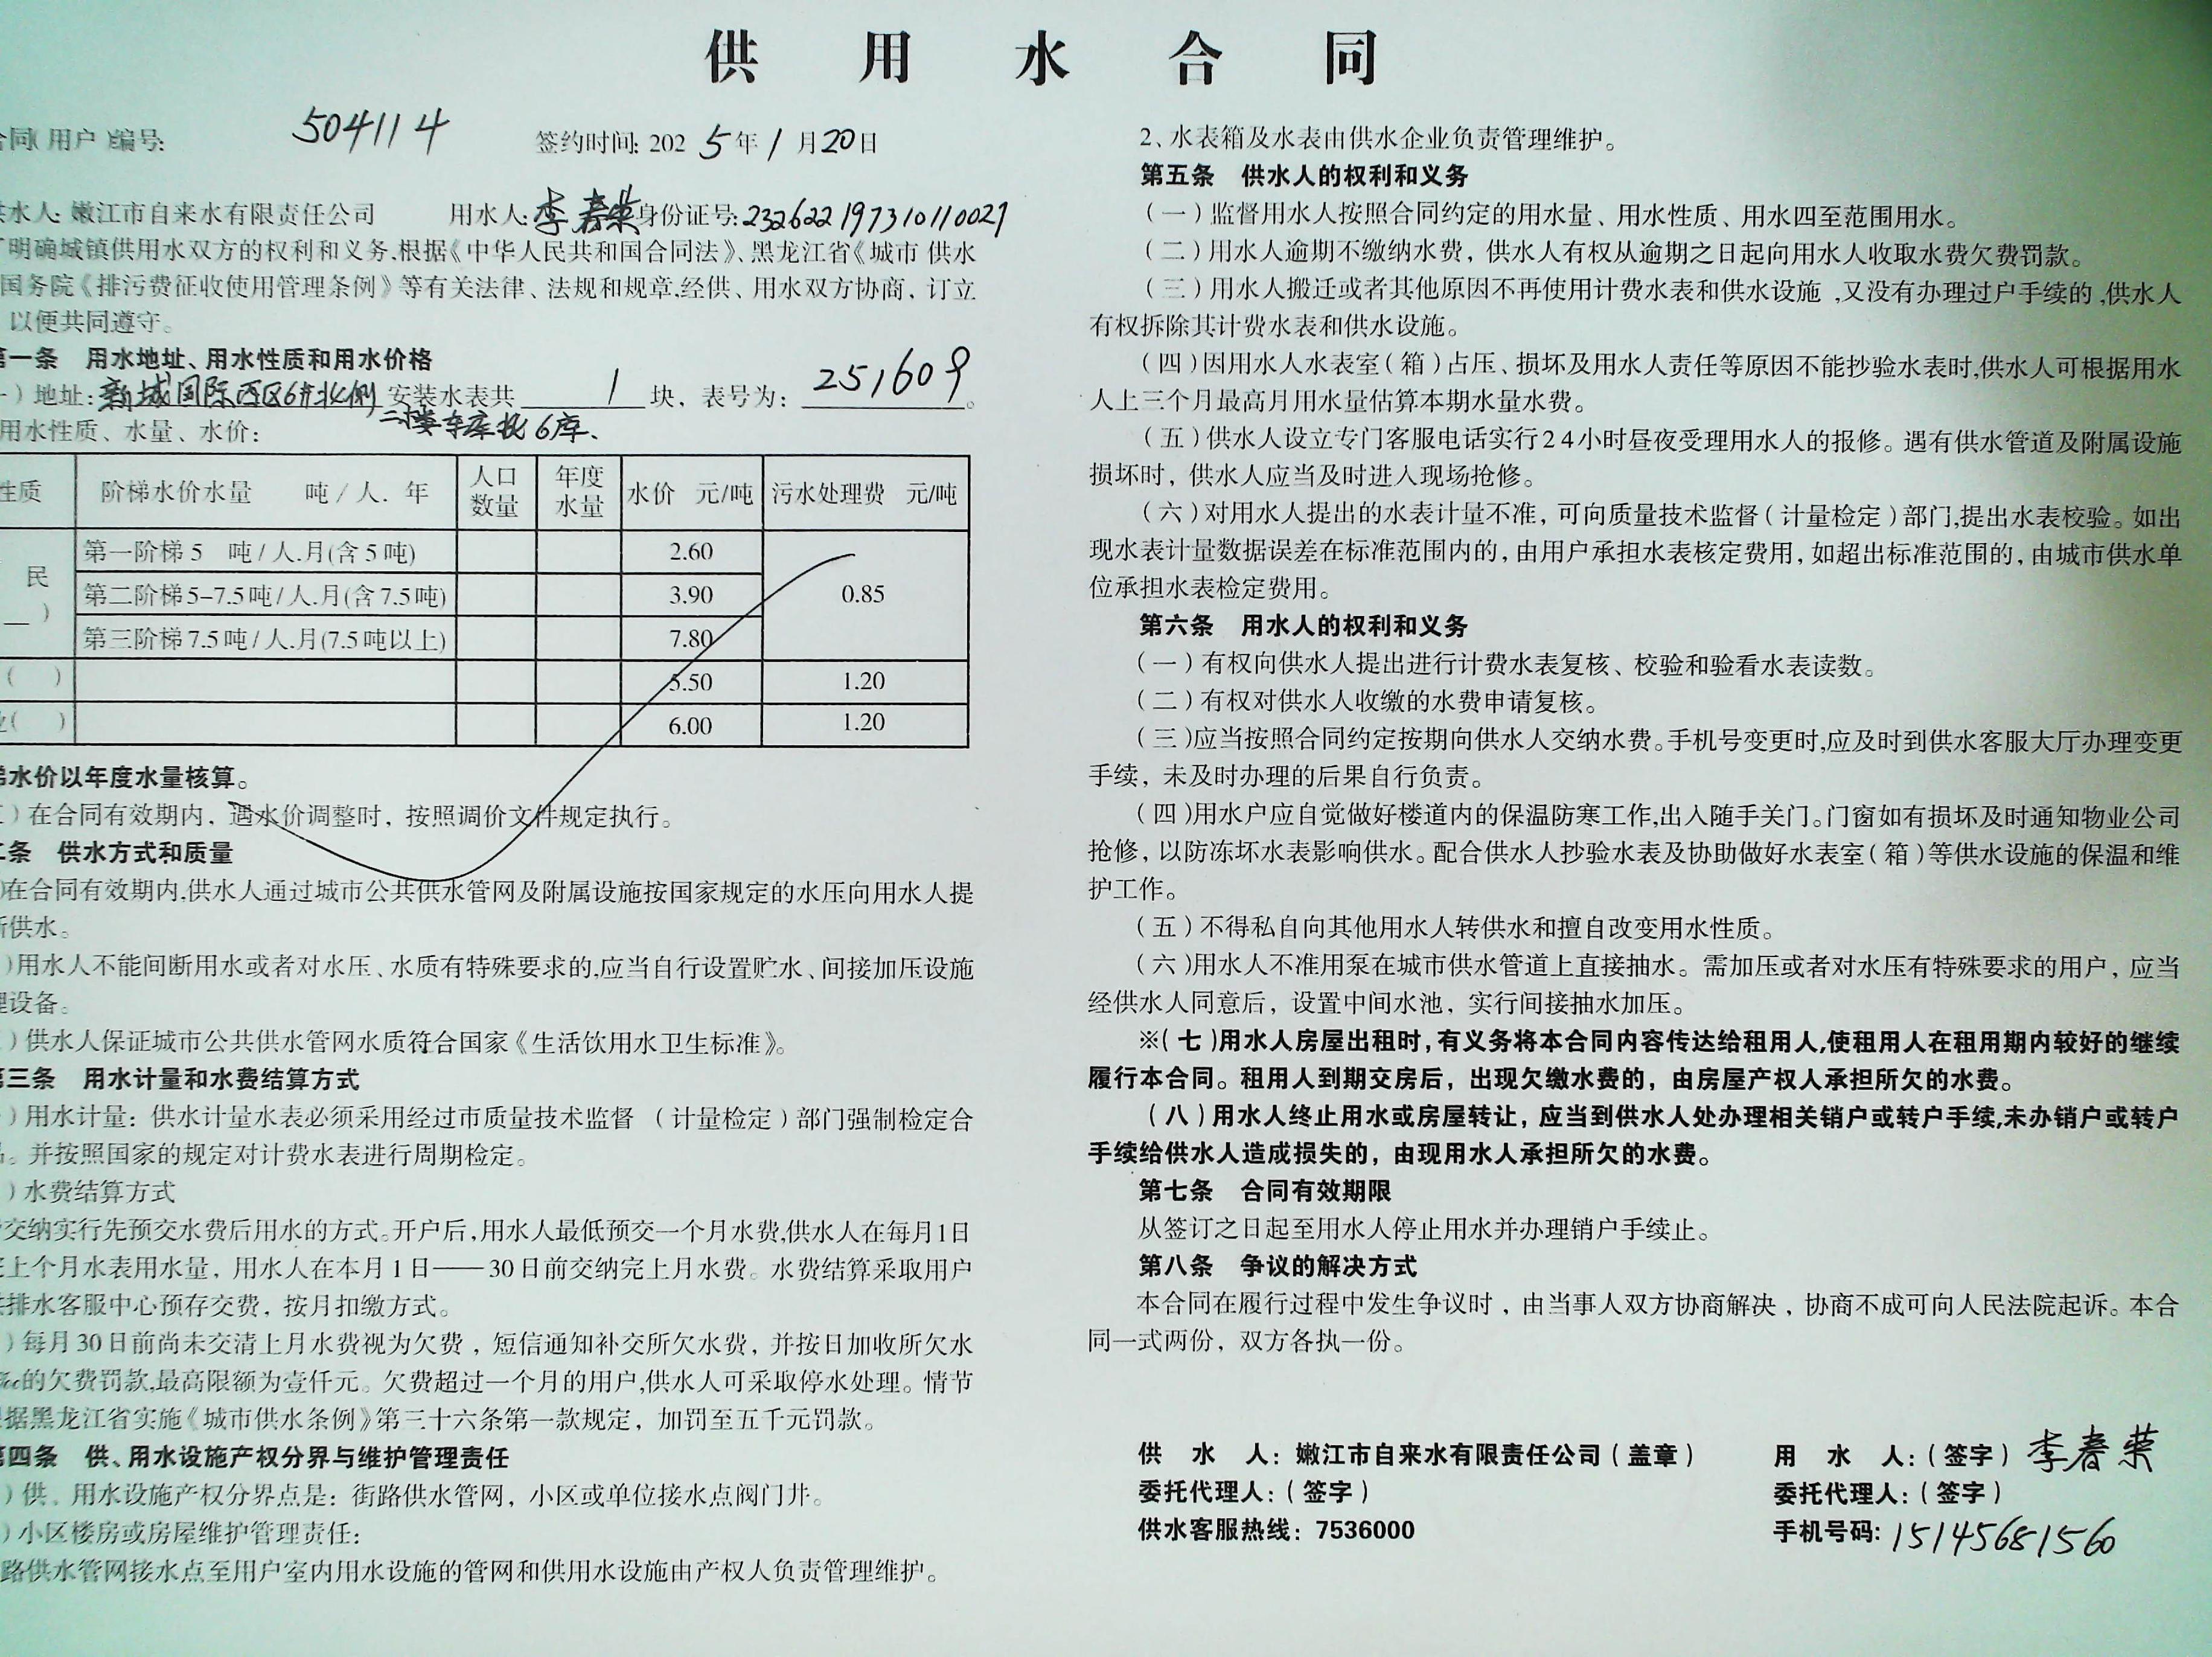 供用水合同
合同(用户)编号: 504114 签约时间: 2025年1月20日
供水人: 嫩江市自来水有限责任公司 用水人: 李春荣 身份证号: 232622197310110027
明确城镇供用水双方的权利和义务,根据《中华人民共和国合同法》、黑龙江省《城市 供水
国务院《排污费征收使用管理条例》等有关法律、法规和规章,经供、用水双方协商，订立
以便共同遵守。
第一条 用水地址、用水性质和用水价格
)地址: 新城国际西区6#北侧 安装水表共 1 块，表号为: 251609。
二楼车库北6库、
用水性质、水量、水价:
性质 阶梯水价水量 吨/人. 年 人口数量 年度水量 水价 元/吨 污水处理费 元/吨
民 第一阶梯5 吨/人.月(含5吨) 2.60 0.85
第二阶梯5-7.5吨/人.月(含7.5吨) 3.90
第三阶梯7.5吨/人.月(7.5吨以上) 7.80
( ) 5.50 1.20
( ) 6.00 1.20
水价以年度水量核算。
)在合同有效期内，遇水价调整时，按照调价文件规定执行。
条 供水方式和质量
)在合同有效期内,供水人通过城市公共供水管网及附属设施按国家规定的水压向用水人提
供水。
)用水人不能间断用水或者对水压、水质有特殊要求的,应当自行设置贮水、间接加压设施
设备。
)供水人保证城市公共供水管网水质符合国家《生活饮用水卫生标准》。
第三条 用水计量和水费结算方式
)用水计量：供水计量水表必须采用经过市质量技术监督 （计量检定）部门强制检定合
。并按照国家的规定对计费水表进行周期检定。
)水费结算方式
交纳实行先预交水费后用水的方式。开户后,用水人最低预交一个月水费,供水人在每月1日
上个月水表用水量，用水人在本月1日——30日前交纳完上月水费。水费结算采取用户
排水客服中心预存交费，按月扣缴方式。
)每月30日前尚未交清上月水费视为欠费，短信通知补交所欠水费，并按日加收所欠水
的欠费罚款,最高限额为壹仟元。欠费超过一个月的用户,供水人可采取停水处理。情节
据黑龙江省实施《城市供水条例》第三十六条第一款规定，加罚至五千元罚款。
第四条 供、用水设施产权分界与维护管理责任
)供、用水设施产权分界点是：街路供水管网，小区或单位接水点阀门井。
)小区楼房或房屋维护管理责任:
路供水管网接水点至用户室内用水设施的管网和供用水设施由产权人负责管理维护。
2、水表箱及水表由供水企业负责管理维护。
第五条 供水人的权利和义务
（一）监督用水人按照合同约定的用水量、用水性质、用水四至范围用水。
（二）用水人逾期不缴纳水费，供水人有权从逾期之日起向用水人收取水费欠费罚款。
（三）用水人搬迁或者其他原因不再使用计费水表和供水设施,又没有办理过户手续的,供水人
有权拆除其计费水表和供水设施。
（四）因用水人水表室（箱）占压、损坏及用水人责任等原因不能抄验水表时,供水人可根据用水
人上三个月最高月用水量估算本期水量水费。
（五）供水人设立专门客服电话实行24小时昼夜受理用水人的报修。遇有供水管道及附属设施
损坏时，供水人应当及时进入现场抢修。
（六）对用水人提出的水表计量不准，可向质量技术监督（计量检定）部门,提出水表校验。如出
现水表计量数据误差在标准范围内的，由用户承担水表核定费用，如超出标准范围的，由城市供水单
位承担水表检定费用。
第六条 用水人的权利和义务
（一）有权向供水人提出进行计费水表复核、校验和验看水表读数。
（二）有权对供水人收缴的水费申请复核。
（三）应当按照合同约定按期向供水人交纳水费。手机号变更时,应及时到供水客服大厅办理变更
手续，未及时办理的后果自行负责。
（四）用水户应自觉做好楼道内的保温防寒工作,出入随手关门。门窗如有损坏及时通知物业公司
抢修，以防冻坏水表影响供水。配合供水人抄验水表及协助做好水表室（箱）等供水设施的保温和维
护工作。
（五）不得私自向其他用水人转供水和擅自改变用水性质。
（六）用水人不准用泵在城市供水管道上直接抽水。需加压或者对水压有特殊要求的用户，应当
经供水人同意后，设置中间水池，实行间接抽水加压。
※（七）用水人房屋出租时,有义务将本合同内容传达给租用人,使租用人在租用期内较好的继续
履行本合同。租用人到期交房后，出现欠缴水费的，由房屋产权人承担所欠的水费。
（八）用水人终止用水或房屋转让，应当到供水人处办理相关销户或转户手续,未办销户或转户
手续给供水人造成损失的，由现用水人承担所欠的水费。
第七条 合同有效期限
从签订之日起至用水人停止用水并办理销户手续止。
第八条 争议的解决方式
本合同在履行过程中发生争议时，由当事人双方协商解决，协商不成可向人民法院起诉。本合
同一式两份，双方各执一份。
供 水 人：嫩江市自来水有限责任公司（盖章） 用 水 人：（签字）李春荣
委托代理人：（签字） 委托代理人：（签字）
供水客服热线：7536000 手机号码: 15145681560